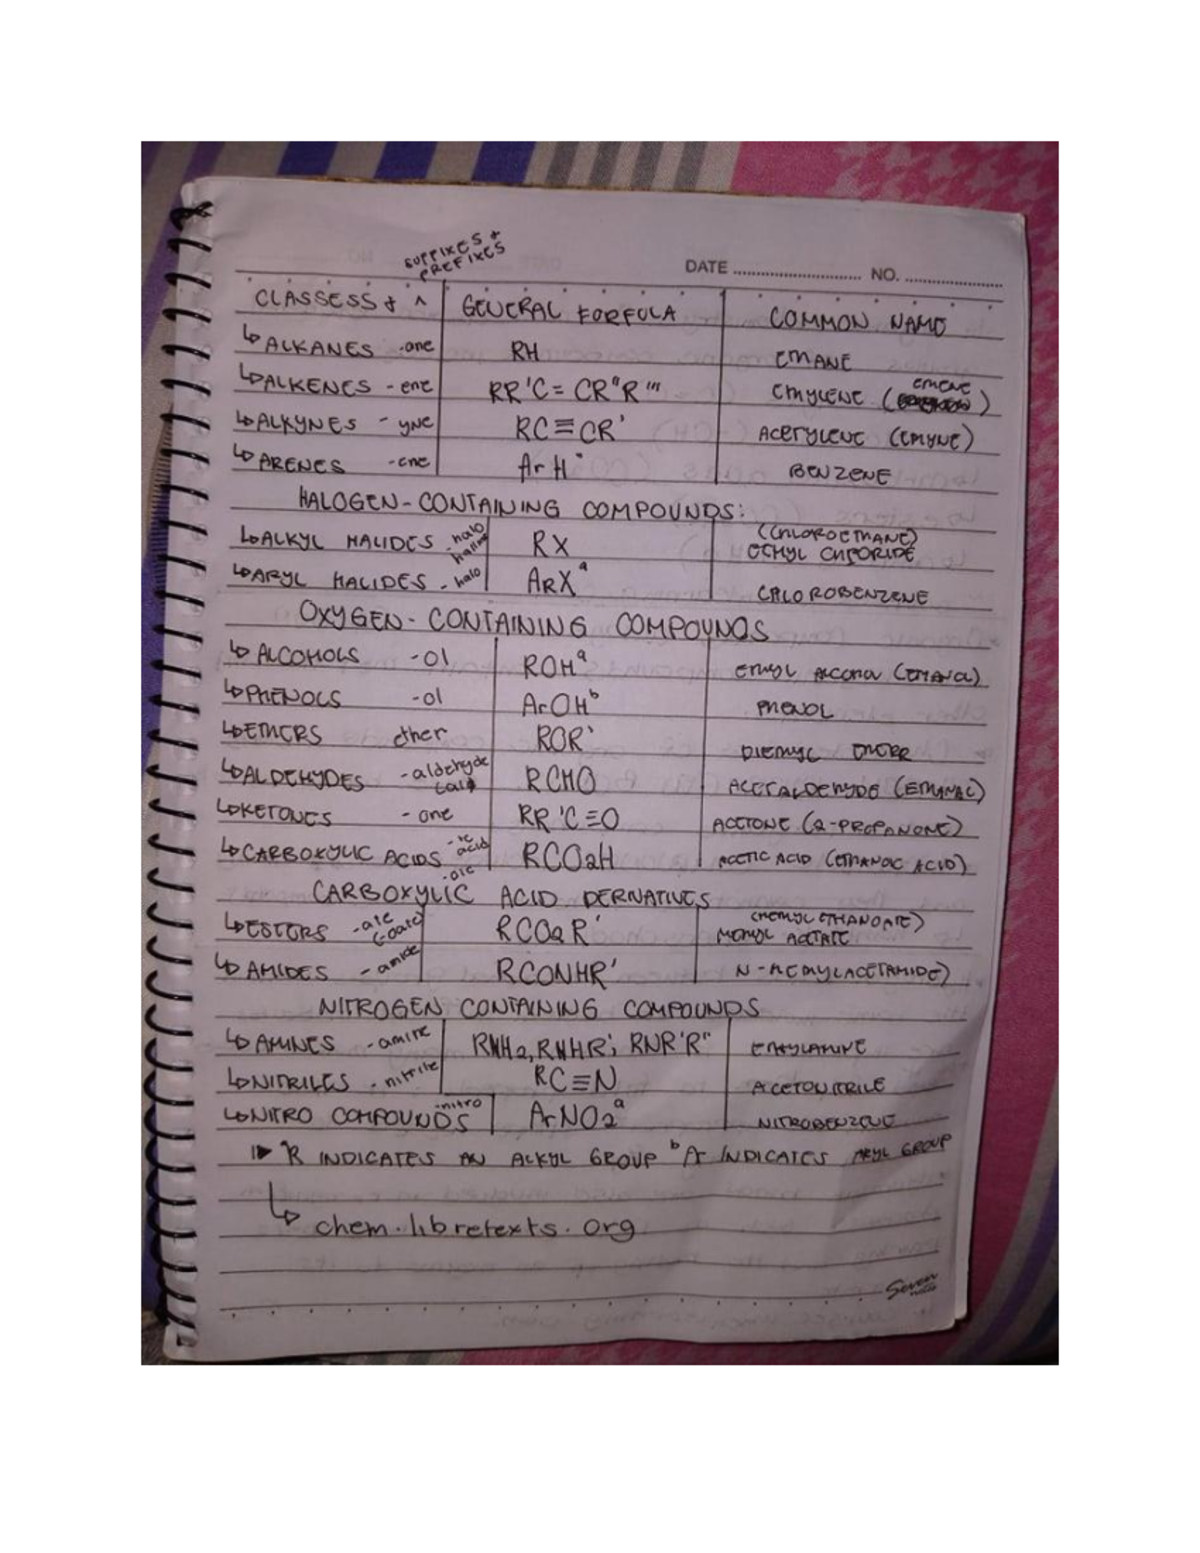 SUFFIXES +
PREFIXES
DATE ............................ NO. .....................
CLASSESS + ^ GENERAL FORFULA COMMON NAME
↳ ALKANES -ane RH ETHANE
↳ ALKENES - ene RR'C = CR"R''' ETHYLENE (ETHENE)
↳ ALKYNES - yne RC≡CR' ACETYLENE (ETHYNE)
↳ ARENES -ene ArH BENZENE
HALOGEN-CONTAINING COMPOUNDS:
↳ ALKYL HALIDES -halo RX (CHLOROETHANE)
ETHYL CHLORIDE
↳ ARYL HALIDES - halo ArXᵃ CHLOROBENZENE
OXYGEN-CONTAINING COMPOUNDS
↳ ALCOHOLS -ol ROHᵃ ETHYL ALCOHOL (ETHANOL)
↳ PHENOLS -ol ArOHᵇ PHENOL
↳ ETHERS ether ROR' DIETHYL ETHER
↳ ALDEHYDES -aldehyde RCHO ACETALDEHYDE (ETHANAL)
↳ KETONES - one RR'C≡O ACETONE (2-PROPANONE)
↳ CARBOXYLIC ACIDS -ic acid RCO2H ACETIC ACID (ETHANOIC ACID)
-oic
CARBOXYLIC ACID DERNATIVES
↳ ESTERS -ate (-oate) RCO2R' (METHYL ETHANOATE)
METHYL ACETATE
↳ AMIDES - amide RCONHR' N-METHYLACETAMIDE)
NITROGEN CONTAINING COMPOUNDS
↳ AMINES -amine RNH2, RNHR', RNR'R" ETHYLAMINE
↳ NITRILES - nitrile RC≡N ACETONITRILE
↳ NITRO COMPOUNDS -nitro ArNO2ᵃ NITROBENZENE
ᵃR INDICATES AN ALKYL GROUP ᵇAr INDICATES ARYL GROUP
↳ chem.libretexts.org
Seven